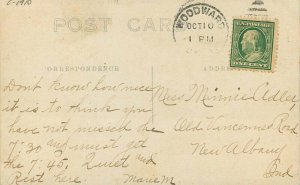 c-1910
POST CARD
WOODWARD
OCT 10
1 PM
CORRESPONDENCE
ADDRESS
Don't know how nice
it is to think you
have not missed the
7:30 and must get
the 7:45, Quiet and
Rest here Marie M.
Miss Minnie Adler
Old Vincennes Road
New Albany
Ind